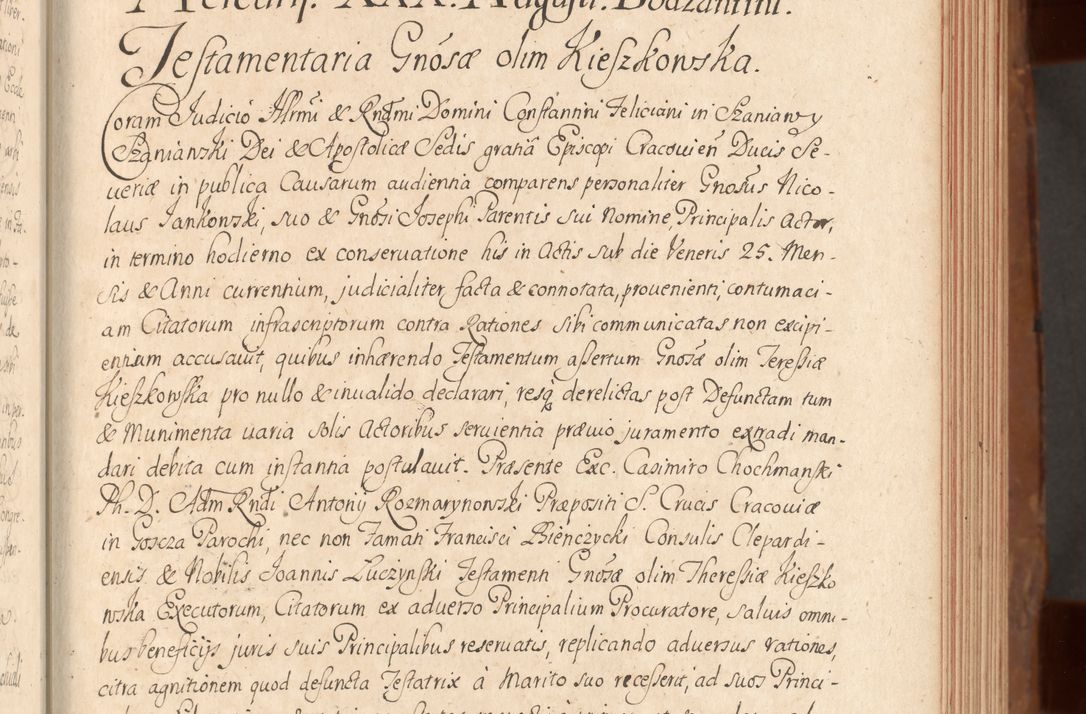 Mercurij. XXX. Augusti. Bodzantini.
Testamentaria Gnosæ olim Kieszkowska.
Coram Judicio Illrmi & Rndmi Domini Constantini Feliciani in Szaniawy
Szaniawski Dei & Apostolicæ Sedis gratiâ Episcopi Cracovien Ducis Se-
veriæ in publica Causarum audientia comparens personaliter Gnosus Nico-
laus Jankowski, suo & Gnosi Josephi Parentis sui nomine, Principalis Actor,
in termino hodierno ex conservatione his in Actis sub die Veneris 25. Men-
sis & Anni currentium, judicialiter facta & connotata, provenienti, contumaci-
am Citatorum infrascriptorum contra Rationes sibi communicatas non excipi-
entium accusavit, quibus inhærendo Testamentum assertum Gnosæ olim Teressiæ
Kieszkowska pro nullo & invalido declarari, resq derelictas post Defunctam tum
& Munimenta varia solis Actoribus servientia prævio juramento extradi man-
dari debita cum instantia postulavit. Præsente Exc. Casimiro Chochmanski
Ph. D. Adm Rndi Antonij Rozmarynowski Præpositi S. Crucis Cracoviæ
in Goscza Parochi, nec non Famati Francisci Bienczycki Consulis Clepardi-
ensis & Nobilis Joannis Luczynski Testamenti Gnosæ olim Theressiæ Kieszko
wska Executorum, Citatorum ex adverso Principalium Procuratore, salvis omni-
bus beneficijs juris suis Principalibus reservatis, replicando adversus rationes,
citra agnitionem quod defuncta Testatrix à Marito suo recesserit, ad suos Princi-